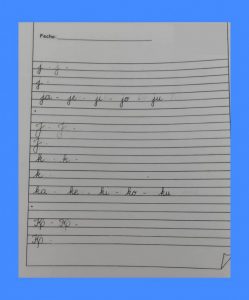 Fecha:
j · j ·
j ·
ja - je - ji - jo - ju
J · J ·
J ·
k · k ·
k
ka - ke - ki - ko - ku
K · K ·
K ·